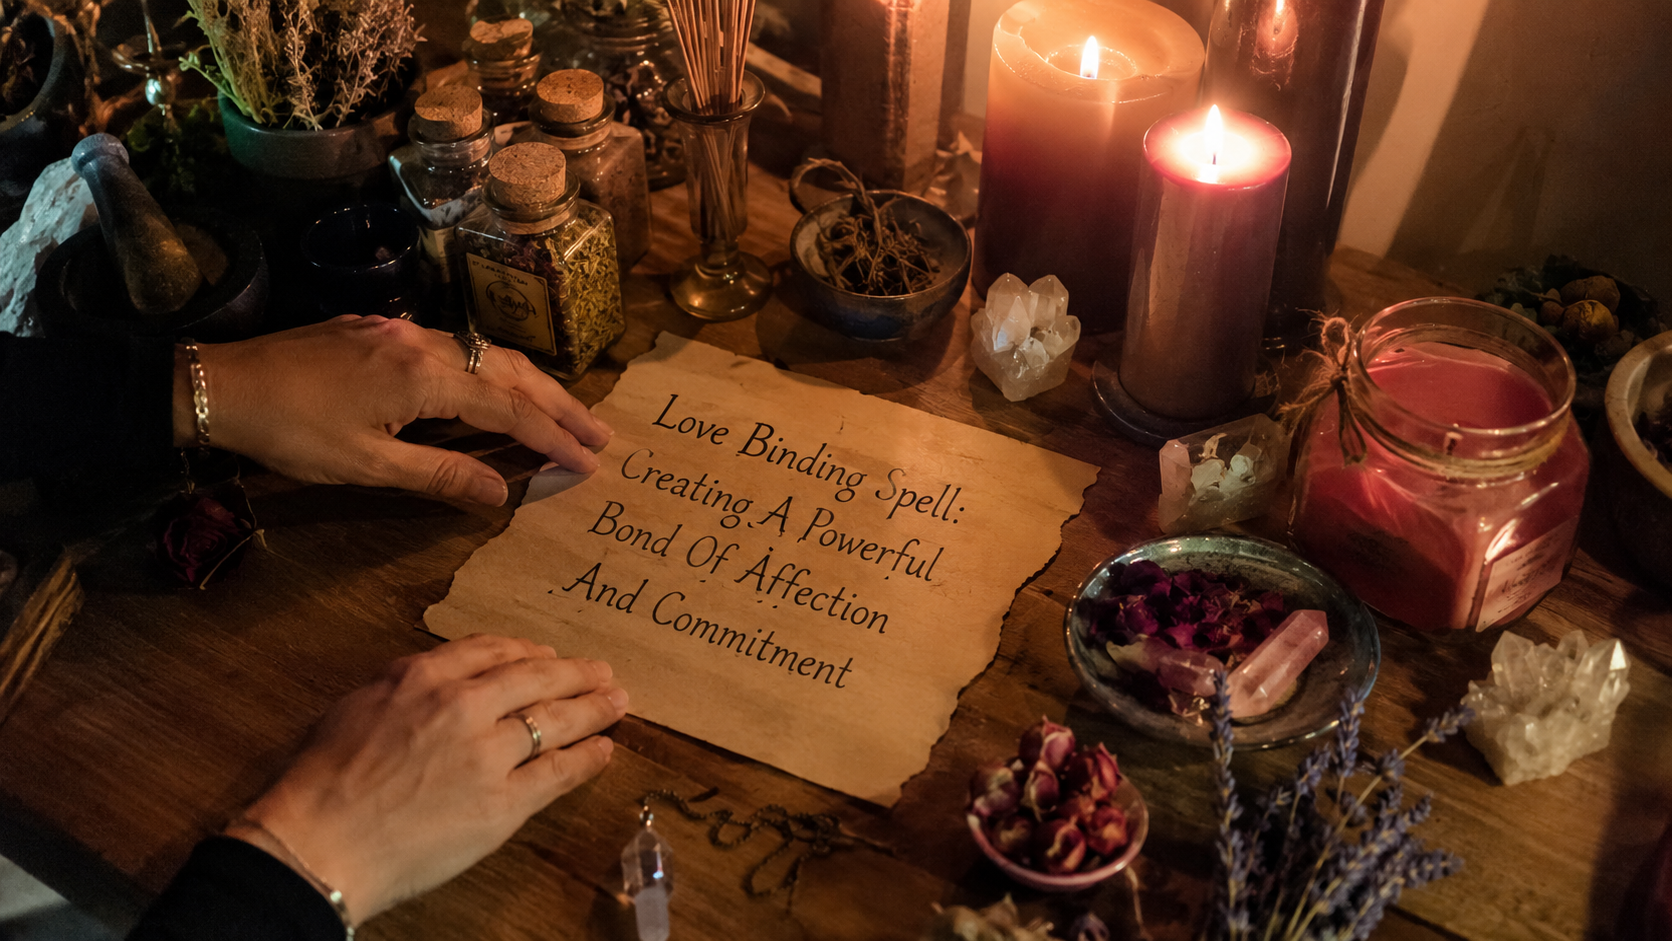 Love Binding Spell:
Creating A Powerful
Bond Of Affection
And Commitment